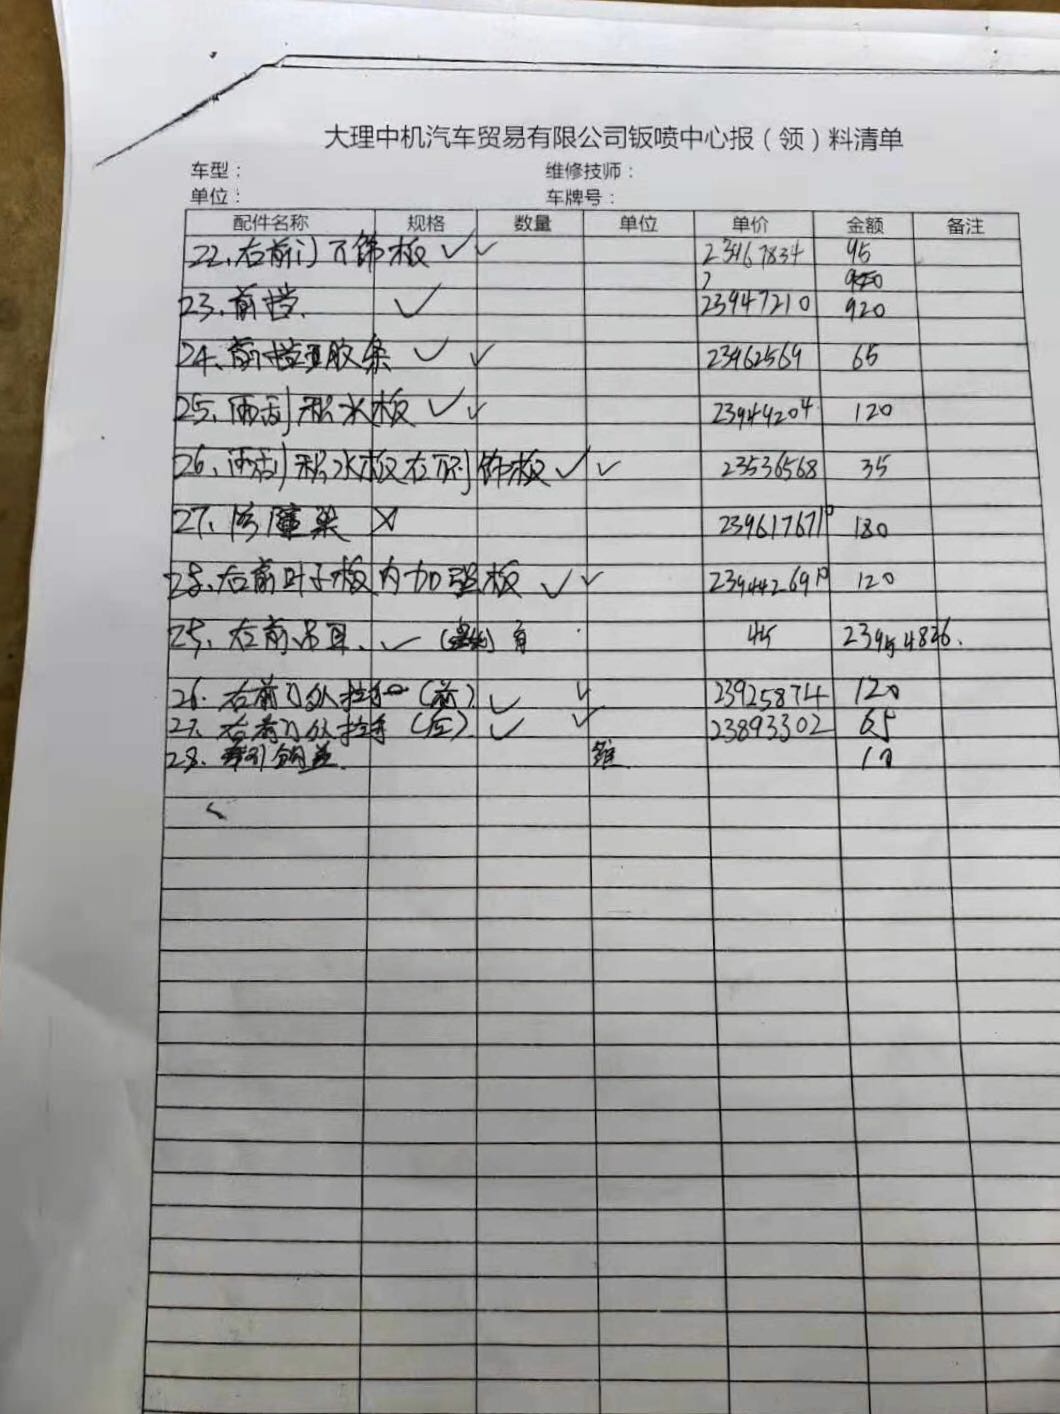 大理中机汽车贸易有限公司钣喷中心报（领）料清单
车型： 维修技师：
单位： 车牌号：
配件名称 规格 数量 单位 单价 金额 备注
22、右前门下饰板 ✓ ✓ 23467834 95
23、前挡 ✓ 23947210 920
24、前挡玻胶条 ✓ ✓ 23962569 65
25、雨刮积水板 ✓ ✓ 23944204 120
26、雨刮积水板右侧饰板 ✓ ✓ 23536568 35
27、防撞梁 × 23961767 180
28、右前叶子板内加强板 ✓ ✓ 23944269 120
25、右前吊耳 ✓ 角 45 23954826.
26. 右前门外拉手（前） ✓ ✓ 23925874 120
27. 右前门外拉手（后） ✓ ✓ 23893302 65
28. 牵引钩盖 10